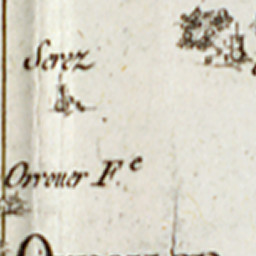 Serez
Orrouer F.e